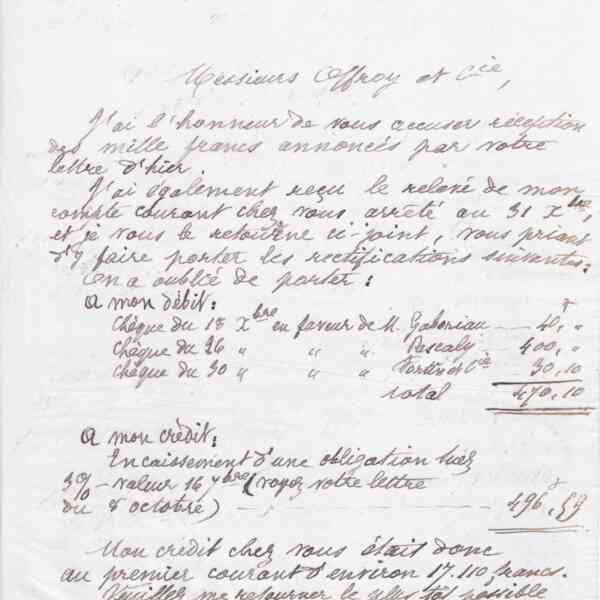 Messieurs Offroy et Cie,
J'ai l'honneur de vous accuser réception
des mille francs annoncés par votre
lettre d'hier.
J'ai également reçu le relevé de mon
compte courant chez vous, arrêté au 31 Xbre,
et je vous le retourne ci-joint, vous priant
d'y faire porter les rectifications suivantes.
On a oublié de porter :
A mon débit :
Chèque du 18 Xbre en faveur de M. Gaboriau — 40, "
Chèque du 26 " " " Pascaly 400, "
Chèque du 30 " " " et Cie 30,10
total 470,10
A mon crédit :
Encaissement d'une obligation Suez
3% - valeur 16 7bre (voyez votre lettre
du 8 octobre) — 496,59
Mon crédit chez vous était donc
au premier courant d'environ 17.110 francs.
Veuillez me retourner le plus tôt possible